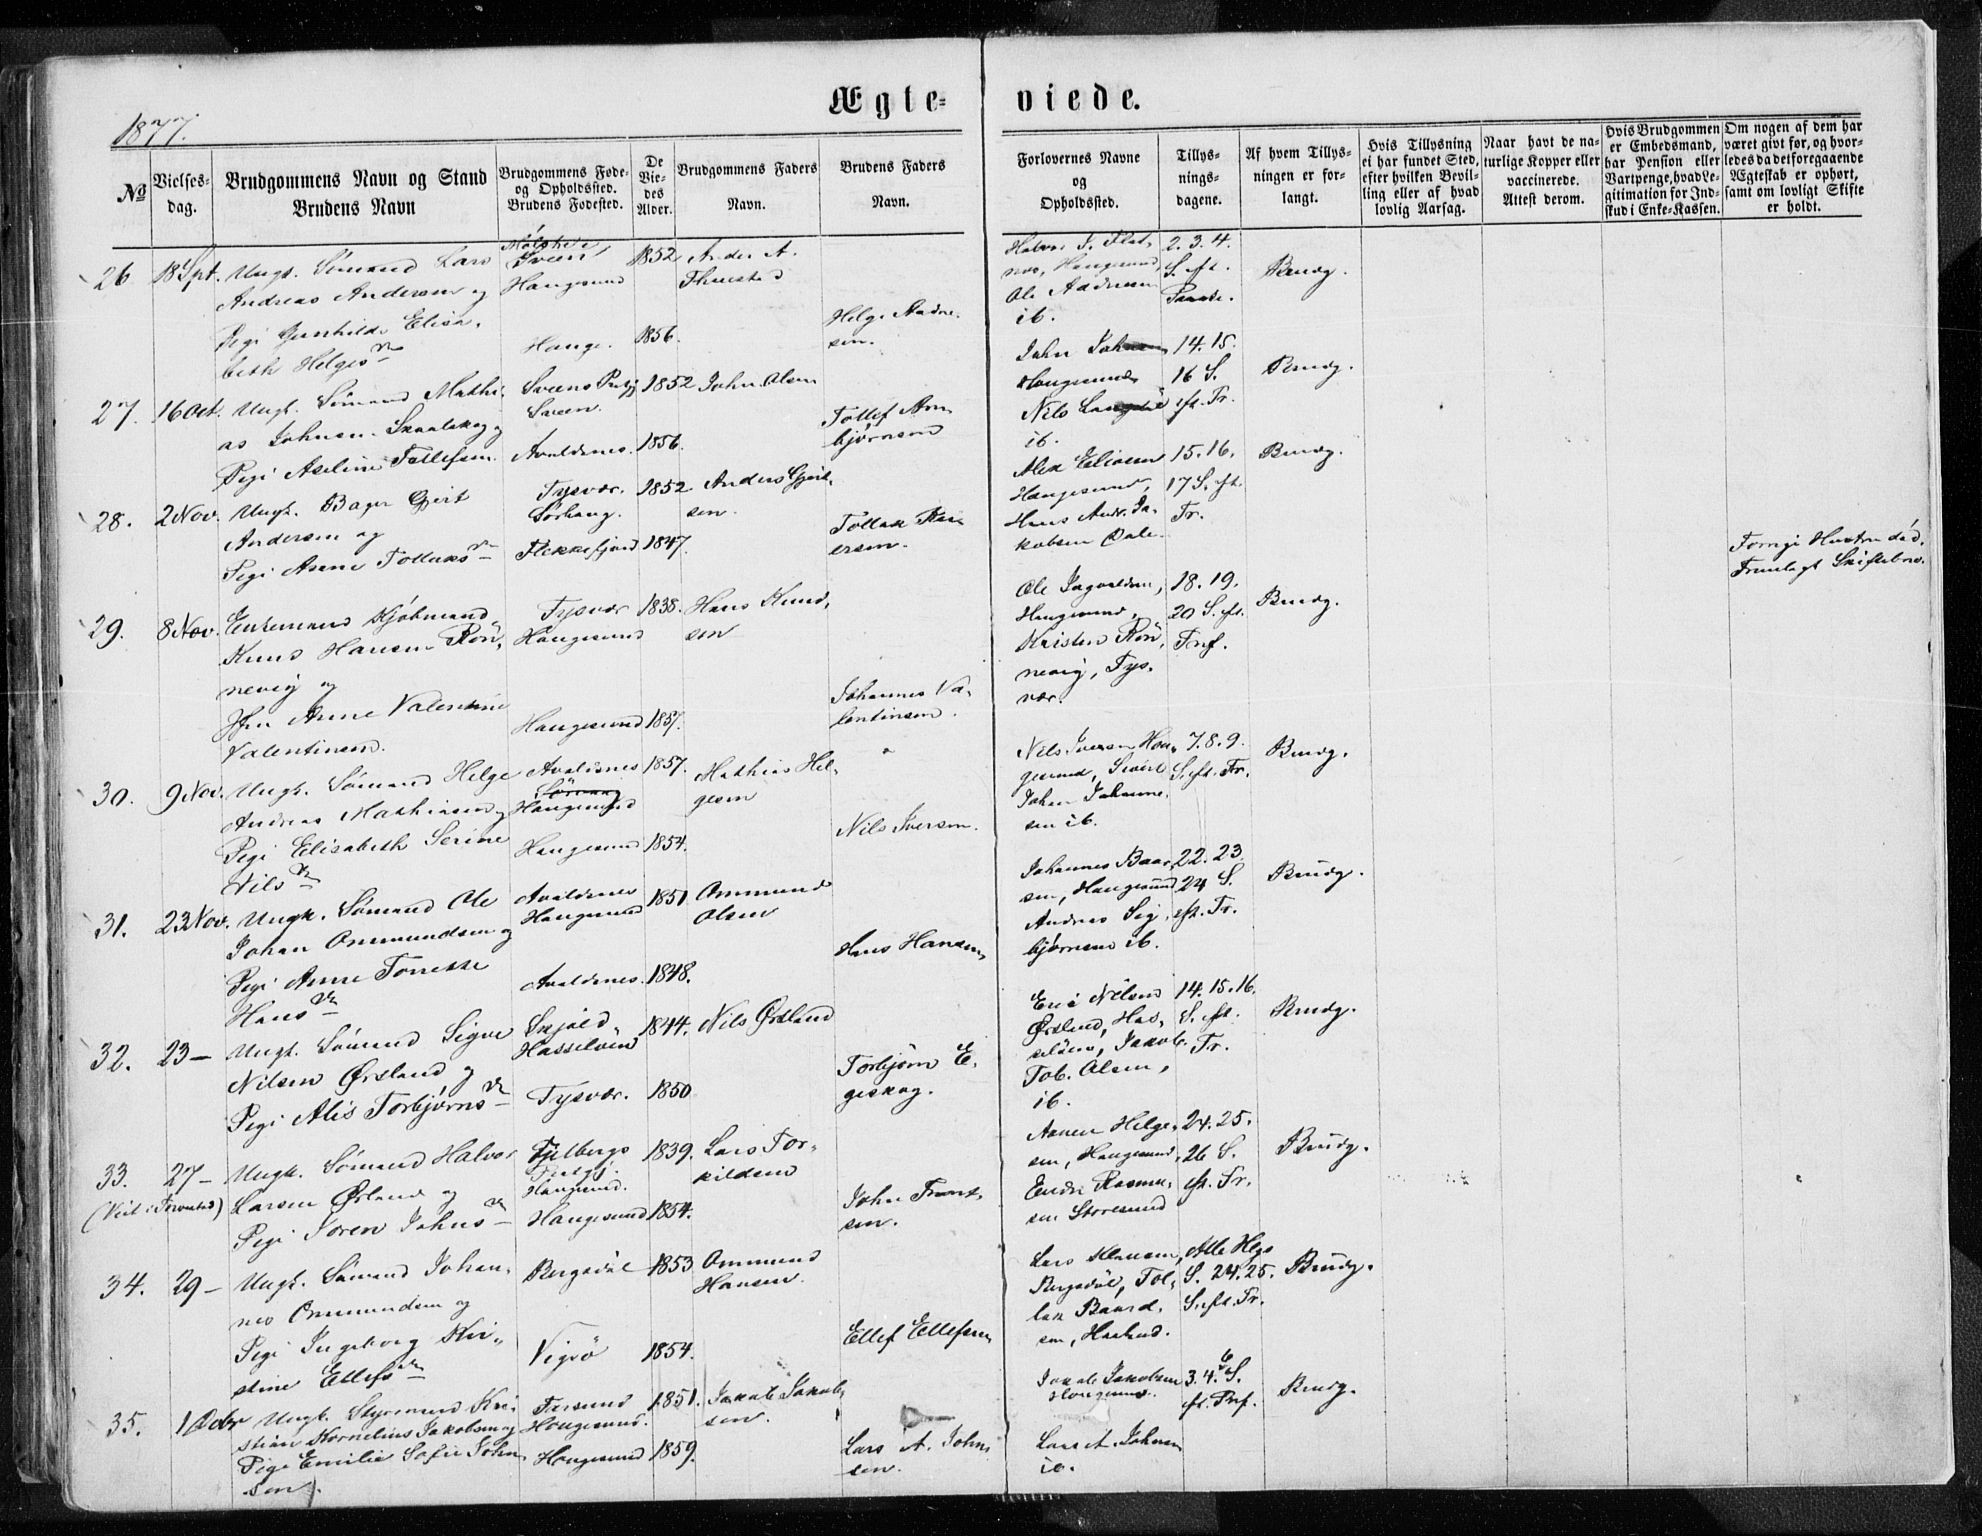 Ægte=
viede.
1877.
№
Vielses=
dag.
Brudgommens Navn og Stand
Brudens Navn
Brudgommens Føde=
og Opholdssted.
Brudens Fødested.
De
Vie=
des
Alder.
Brudgommens Faders
Navn.
Brudens Faders
Navn.
Forlovernes Navne
og
Opholdssted.
Tillys=
nings=
dagene.
Af hvem Tillys=
ningen er for=
langt.
Hvis Tillysning
ei har fundet Sted,
efter hvilken Bevil=
ling eller af hvad
lovlig Aarsag.
Naar havt de na=
turlige Kopper eller
vaccinerede.
Attest derom.
Hvis Brudgommen
er Embedsmand,
har Pension eller
Vartpenge, hvad Le=
gitimation for Ind=
skud i Enke-Kassen.
Om nogen af dem har
været givt før, og hvor=
ledes da det foregaaende
Ægteskab er ophørt,
samt om lovligt Skifte
er holdt.
26 18 Spt. Ungk. Sömand Lars
Andreas Andersen og
Pigi Gunhilde Elisa,
beth Helgesd
Sveen,
Haugesund
Hauge.
1852
1856.
Ander A.
Helge Andre,
sen.
Haugesund,
Ole Andresen
ib.
2. 3. 4.
S. eft.
Brudg.
27. 16 Oct. Ungk. Sömand Mathi,
as Johnsen Skaalskog og
Pigi Aseline Tollefsen
Sveens Prstgj
Sveen.
Avaldsnes.
1852
1856.
John Olsen
Tollef Arn
björnsen
John
Haugesund
Nils
ib.
14. 15.
16 S.
eft. Tr.
Brudg.
28. 2 Nov. Ungk. Bager Gjert
Andersen og
Pigi Asene Tollaksd
Tysvær.
Sörhaug.
Flekkefjord
1852
1847.
Anders Gjert,
sen.
Tollak Rei,
ersen.
Alex Eliasen
Haugesund,
Hans Andr. Ja,
kobsen Dale.
15. 16.
17 S. eft.
Tr.
Brudg.
29. 8 Nov. Enkemand Kjöbmand
Knud Hansen Rön,
nevig og
Jfr. Anne Valentine
Valentinsen.
Tysvær
Haugesund
Haugesund
1838.
1857.
Hans Knud,
sen
Johannes Va,
lentinsen.
Ole Ingvaldsen,
Haugesund,
Kristen Rön,
nevig, Tys,
vær.
18. 19.
20 S. eft.
Tref.
Brudg.
Forrige Hustru död.
Fremlagt Skiftebrev.
30. 9 Nov. Ungk. Sömand Helge
Andreas Mathiasen og
Pigi Elisabeth Serine
Nilsd
Avaldsnes
Haugesund
Haugesund
1857.
1854.
Mathias Hel,
gesen
Nils Iversen.
Nils Iversen Hau,
gesund, Sivert
Johan Johanne,
sen ib.
7. 8. 9.
S. eft. Tr.
Brudg.
31. 23 Nov. Ungk. Sömand Ole
Johan Ommundsen og
Pigi Anne Torette
Hansd
Avaldsnes
Haugesund
Avaldsnes.
1851
1848.
Ommund
Olsen
Hans Hansen
Johannes Baar,
sen, Haugesund
Andreas Sig,
björnsen ib.
22. 23.
24 S.
eft. Tr.
Brudg.
32. 23 — Ungk. Sömand Sigve
Nilsen Örsland og
Pigi Alis Torbjörnsd
Skjold
Hasselöen
Tysvær.
1844.
1850
Nils Örsland
Torbjörn E,
geskog.
Eric Nilsen
Örsland, Has,
selöen, Jakob
Tob. Olsen,
ib.
14. 15. 16.
S. eft.
Tr.
Brudg.
33. 27 — Ungk. Sömand Halvor
(Viet i Torvestad) Larsen Örland og
Pigi Soren Johnsd
Prstgj.
Haugesund.
Haugesund
1839.
1854.
Lars Tor,
kildsen
John Trond,
sen.
Aanen Helge,
sen, Haugesund,
Endre Rasmu,
sen Storesund
24. 25.
26 S.
eft. Tr.
Brudg.
34. 29 — Ungk. Sömand Johan,
nes Ommundsen og
Pigi Ingeborg Kri,
stine Ellefsd
Bergsdal
Vigsö
1853
1854.
Ommund
Hansen.
Ellef Ellefsen
Lars Hansen,
Bergsdal, Tol,
lak Baard,
sen,
Alle Helgs
S. 24. 25.
S. eft. Tr.
Brudg.
35. 1 Decbr Ungk. Styrmand Kri,
stian Kornelius Jakobsen og
Pige Emilie Sofie John
sen
Farsund
Haugesund.
Haugesund
1851.
1859.
Jakob Jakob,
sen.
Lars A. John,
sen.
Jakob Jakobsen
Haugesund.
Lars A. Johnsen
ib.
3. 4. 6 S.
ft. Tref.
Brudg.